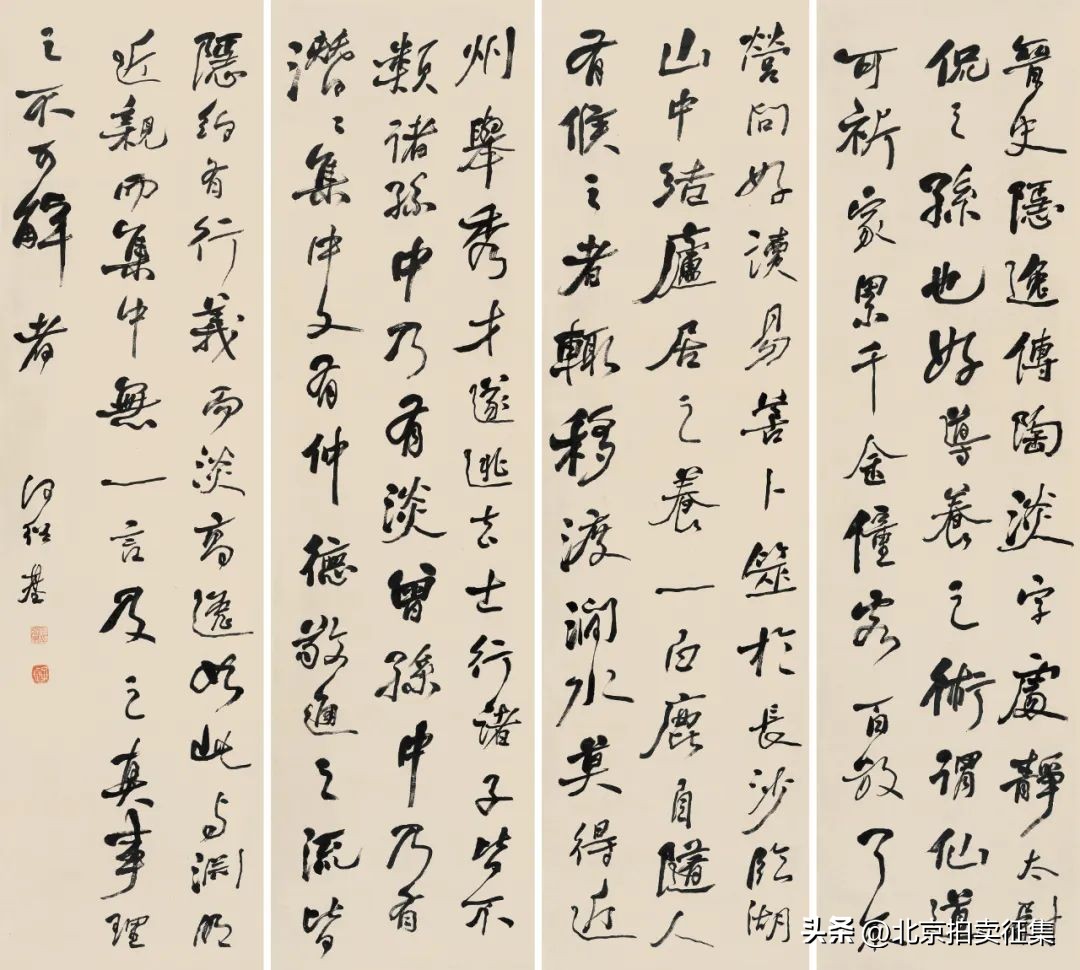 晉史隱逸傳陶淡字處靜太尉
侃之孫也好導養之術謂仙道
可祈家累千金僮客百數了不
營問好讀易善卜筮於長沙臨湖
山中結廬居之養一白鹿自隨人
有候之者輒移渡澗水莫得近
州舉秀才遂逃去士行諸子皆不
類諸孫中乃有淡曾孫中乃有
潛〻集中文有仲德敬通之流皆
隱約有行義而淡高遙如此与淵明
近親而集中無一言及之真事理
之不可解者
何紹基
头条 @北京拍卖征集